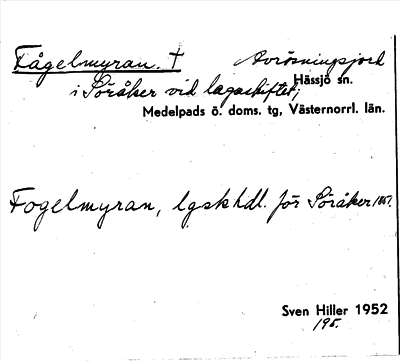 Fågelmyran. † Avrösningsjord
Hässjö sn.
i Söråker vid lagaskiftet;
Medelpads ö. doms. tg, Västernorrl. län.
Fogelmyran, lgskhdl. för Söråker 1887.
Sven Hiller 1952
195.